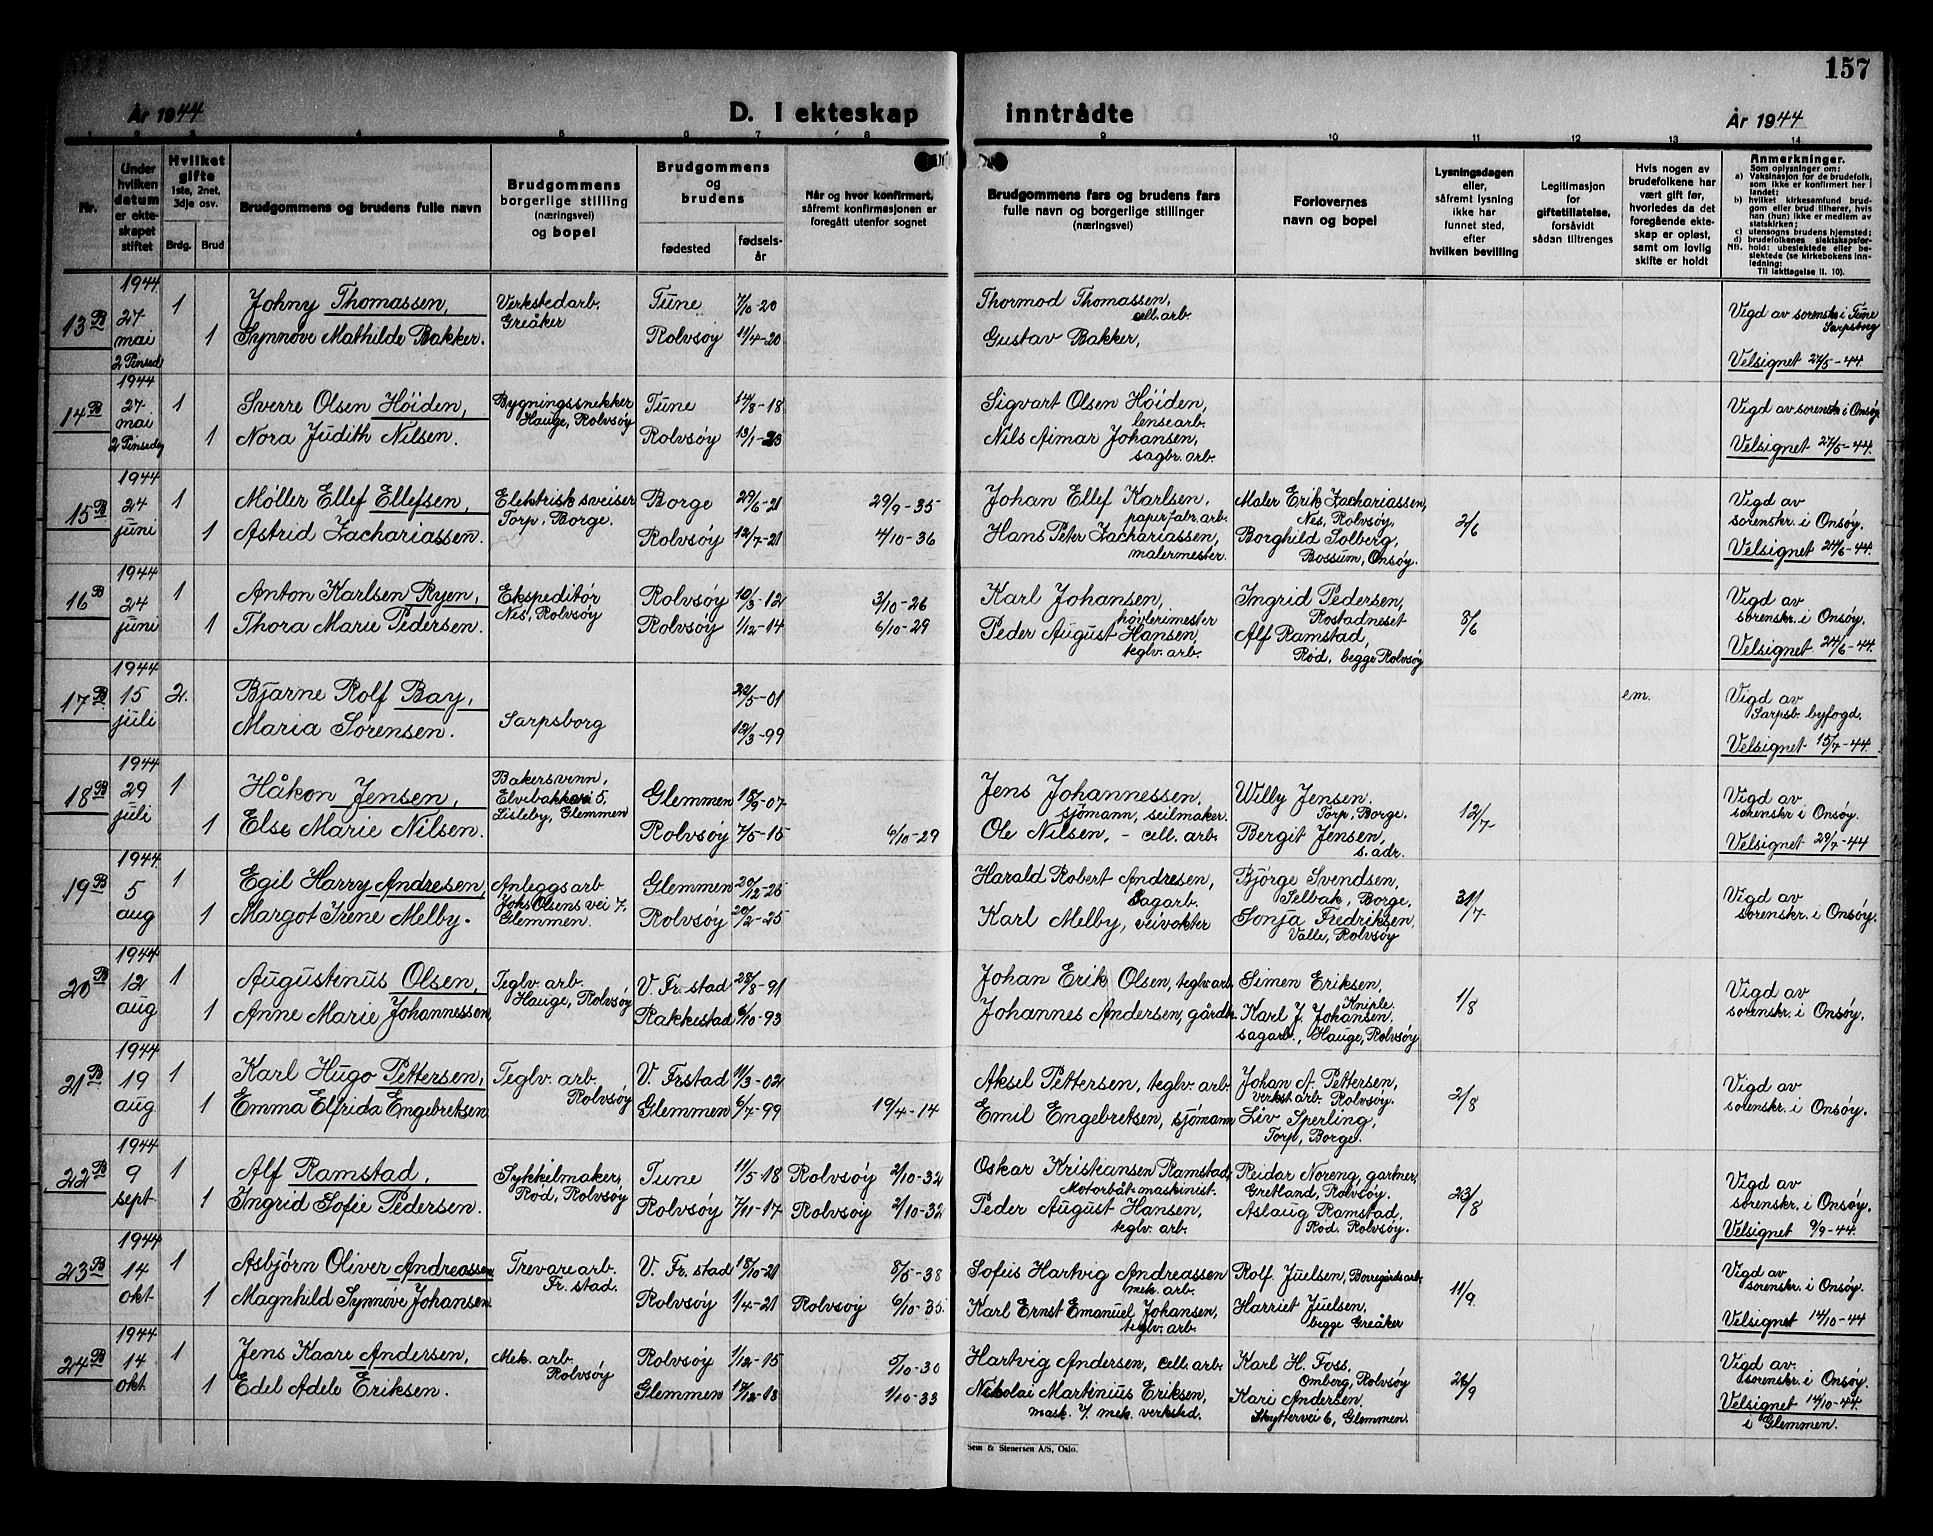 157
År 1944
D. I ekteskap inntrådte
År 1944
1 2 3 4 5 6 7 8 9 10 11 12 13 14
Nr.
Under hvilken datum er ekteskapet stiftet
Hvilket gifte 1ste, 2net, 3dje osv.
Brdg. Brud
Brudgommens og brudens fulle navn
Brudgommens borgerlige stilling (næringsvei) og bopel
Brudgommens og brudens
fødested
fødselsår
Når og hvor konfirmert, såfremt konfirmasjonen er foregått utenfor sognet
Brudgommens fars og brudens fars fulle navn og borgerlige stillinger (næringsvei)
Forlovernes navn og bopel
Lysningsdagen eller, såfremt lysning ikke har funnet sted, efter hvilken bevilling
Legitimasjon for giftetillatelse, forsåvidt sådan tiltrenges
Hvis nogen av brudefolkene har vært gift før, hvorledes da det foregående ekteskap er opløst, samt om lovlig skifte er holdt
Anmerkninger.
Som oplysninger om:
a) Vaksinasjon for de brudefolk, som ikke er konfirmert her i landet;
b) hvilket kirkesamfund brudgom eller brud tilhører, hvis han (hun) ikke er medlem av statskirken;
c) utensogns brudens hjemsted;
d) brudefolkenes slektskapsforhold: ubeslektede eller beslektede (se kirkebokens innledning:
NB. Til iakttagelse II. 10).
13 B 1944 27 mai 2 Pinsed
1 Johny Thomassen, Verkstedarb. Greåker Tune 7/10-20 Thormod Thomassen, cell. arb.
1 Synnøve Mathilde Bakker. Rolvsöy 11/4-20 Gustav Bakker,
Vigd av sorenskr i Tune Sarpsborg
Velsignet 27/5-44.
14 B 1944 27 mai 2 Pinsedag
1 Sverre Olsen Höiden, Bygningssnekker Hauge, Rolvsöy Tune 14/8-18 Sigvart Olsen Höiden, lensearb.
1 Nora Judith Nilsen. Rolvsöy 13/1-23 Nils Aimar Johansen, sagbr. arb.
Vigd av sorenskr i Onsöy
Velsignet 27/5-44.
15 B 1944 24 juni
1 Møller Ellef Ellefsen, Elektrisk sveiser Torp, Borge. Borge 29/6-21 29/9-35 Johan Ellef Karlsen, papirfabr. arb. Maler Erik Zachariassen, Nes, Rolvsöy,
1 Astrid Zachariassen. Rolvsöy 12/7-21 4/10-36 Hans Peter Zachariassen, malermester. Borghild Solberg, Bossum, Onsöy.
2/6
Vigd av sorenskr. i Onsöy.
Velsignet 24/6-44.
16 B 1944 24 juni
1 Anton Karlsen Ryen, Ekspeditör Nes, Rolvsöy Rolvsöy 10/3-12 3/10-26 Karl Johansen, hövlerimester Ingrid Pedersen, Rostadneset
1 Thora Marie Pedersen. Rolvsöy 1/12-14 6/10-29 Peder August Hansen, teglv. arb. Alf Ramstad, Röd, begge Rolvsöy
8/6
Vigd av sorenskr. i Onsöy.
Velsignet 24/6-44.
17 B 1944 15 juli
2. Bjarne Rolf Bay, Sarpsborg 22/5-01
Maria Sörensen. 12/3-99
em.
Vigd av Sarpsb. byfogd.
Velsignet 15/7-44.
18 B 1944 29 juli
1 Håkon Jensen, Bakersvenn, Elvibakkvei 5, Lisleby, Glemmen Glemmen 18/9-07 Jens Johannessen. sjömann, seilmaker. Willy Jensen. Torp, Borge.
1 Else Marie Nilsen. Rolvsöy 7/5-15 6/10-29 Ole Nilsen, - cell. arb. Bergit Jensen, s. adr.
12/7
Vigd av sorenskr i Onsöy.
Velsignet 29/7-44
19 B 1944 5 aug
1 Egil Harry Andresen, Anleggsarb Johs Olsens vei 7. Glemmen. Glemmen 20/12-25 Harald Robert Andresen, Sagarb. Björge Svendsen, Selbak, Borge.
1 Margot Irene Melby. Rolvsöy 20/2-25 Karl Melby, veivokter Sonja Fredriksen, Valle, Rolvsöy
31/7
Vigd av sorenskr. i Onsöy.
20 B 1944 12 aug
1 Augustenus Olsen, Teglv. arb. Hauge, Rolvsöy V. Fr. stad 28/8-91 Johan Erik Olsen, teglv. arb. Simen Eriksen, Kniple.
1 Anne Marie Johannessen Rakkestad 6/10-93 Johannes Andersen, gårdbr. Karl J. Johansen. sagarb., Hauge, Rolvsöy
1/8
Vigd av sorenskr. i Onsöy.
21 B 1944 19 aug
1 Karl Hugo Pettersen, Teglv. arb. Rolvsöy V. Frstad 11/3-02 Aksel Pettersen, teglv. arb. Johan A. Pettersen, verkst. arb. Rolvsöy.
1 Emma Elfrida Engebretsen Glemmen 6/7-99 19/4-14 Emil Engebretsen, sjömann Liv Sperling, Torp, Borge.
2/8
Vigd av sorenskr. i Onsöy.
22 B 1944 9 sept
1 Alf Ramstad, Sykkelmaker, Röd, Rolvsöy Tune 11/5-18 Rolvsöy 2/10-32 Oskar Kristiansen Ramstad, Motorbåt-maskinist. Reidar Noreng, gartner, Gretland, Rolvsöy.
1 Ingrid Sofie Pedersen. Rolvsöy 7/11-17 Rolvsöy 2/10-32 Peder August Hansen, teglv. arb. Aslaug Ramstad, Röd. Rolvsöy.
23/8
Vigd av sorenskr. i Onsöy.
Velsignet 9/9-44.
23 B 1944 14 okt
1 Asbjörn Oliver Andreassen Trevarearb. Fr. stad. V. Fr. stad 18/10-21 8/5-38 Sofus Hartvig Andreassen mek. arb. Rolf Juelsen, Borregårdsarb.
1 Magnhild Synnöve Johansen Rolvsöy 1/4-21 Rolvsöy 6/10-35 Karl Ernst Emanuel Johansen, teglv. arb. Harriet Juelsen. begge Greåker
11/9.
Vigd av sorenskr. i Onsöy.
Velsignet 14/10-44
24 B 1944 14 okt.
1 Jens Kaare Andersen, Mek. arb. Rolvsöy Rolvsöy 1/12-15 5/10-30 Hartvig Andersen, cell. arb. Karl H. Foss, Omberg, Rolvsöy
1 Edel Adele Eriksen. Glemmen 17/12-18 1/10-33 Nikolai Martinius Eriksen, mask. v/ mek. verksted. Kari Andersen. Skyttervei 6, Glemmen.
26/9
Vigd av sorenskr. i Onsöy.
Velsignet 14/10-44. i Glemmen.
Sem & Stenersen A/S, Oslo.